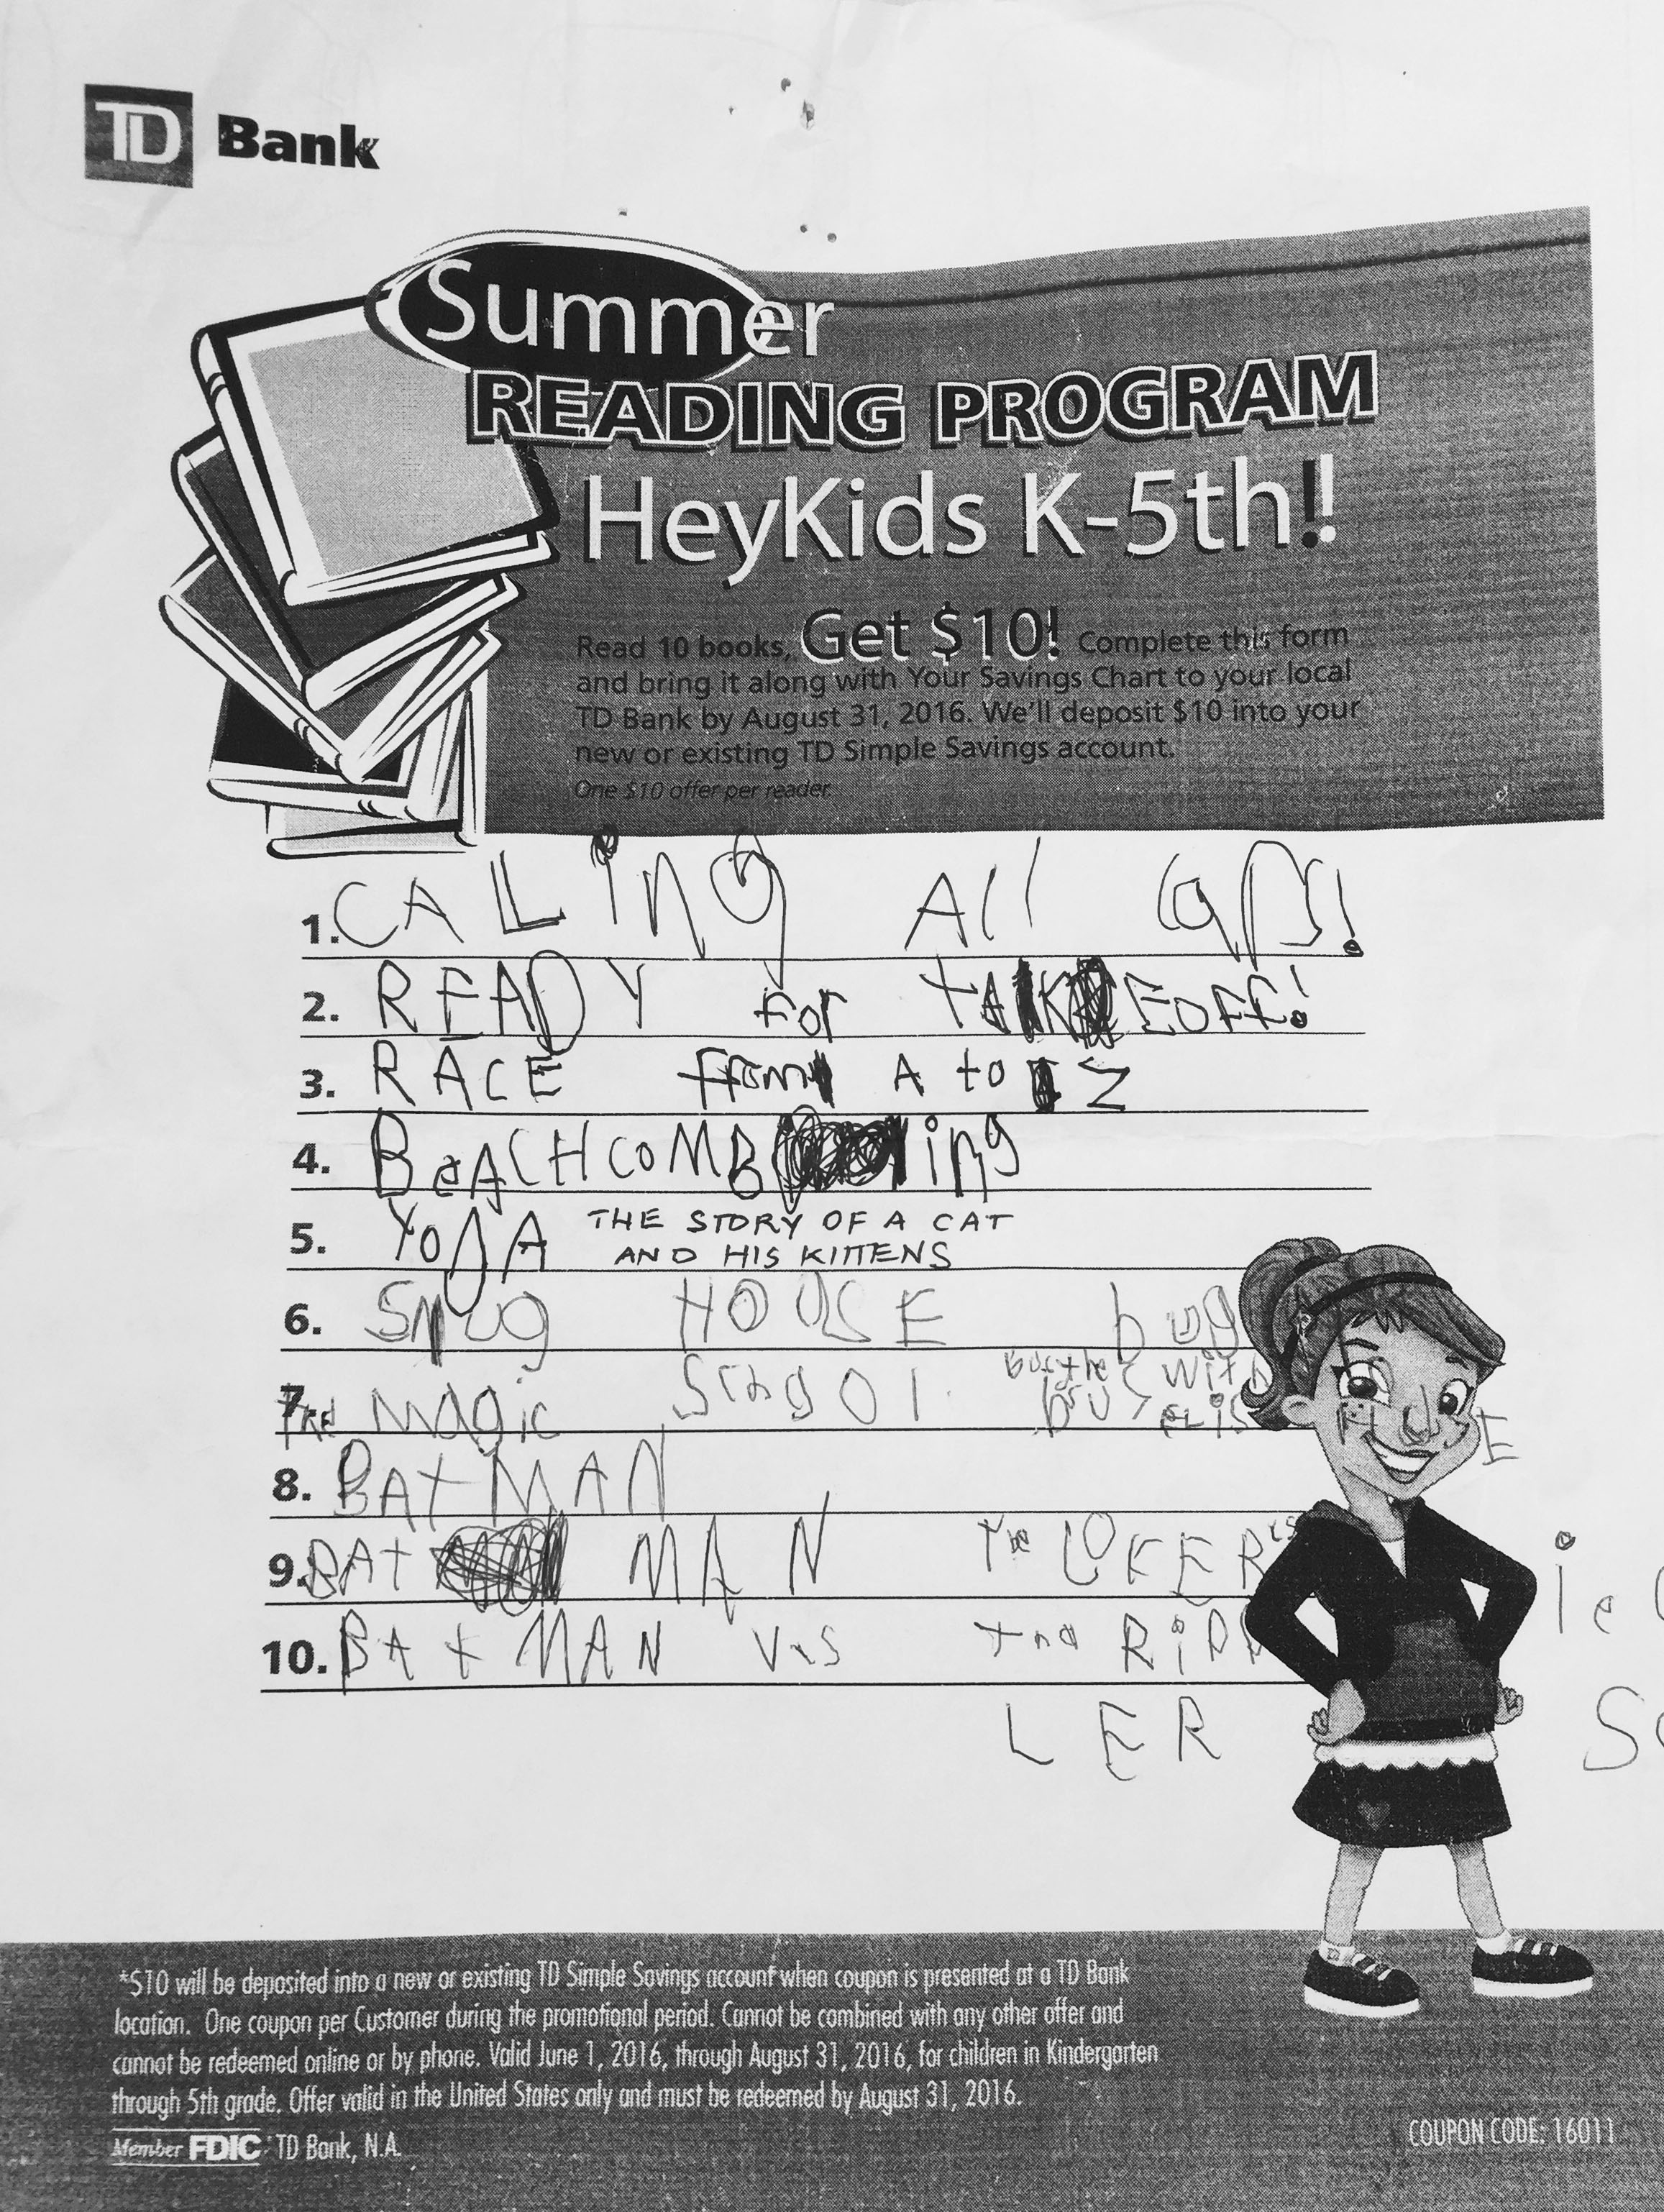 TD Bank
Summer
READING PROGRAM
HeyKids K-5th!
Read 10 books, Get $10! Complete this form
and bring it along with Your Savings Chart to your local
TD Bank by August 31, 2016. We'll deposit $10 into your
new or existing TD Simple Savings account.
One $10 offer per reader.
1. CALLing All CArs!
2. READY For tAKEOFF!
3. RACE from A to Z
4. BeACHcoMBing
5. YOgA THE STORY OF A CAT
AND HIS KITTENS
6. Snug HOUSE bug
7. Magic
8. BAtMAN
9. BAt MAN
10. BAtMAN RiDD
LER
*$10 will be deposited into a new or existing TD Simple Savings account when coupon is presented at a TD Bank
location. One coupon per Customer during the promotional period. Cannot be combined with any other offer and
cannot be redeemed online or by phone. Valid June 1, 2016, through August 31, 2016, for children in Kindergarten
through 5th grade. Offer valid in the United States only and must be redeemed by August 31, 2016.
Member FDIC TD Bank, N.A.
COUPON CODE: 16011